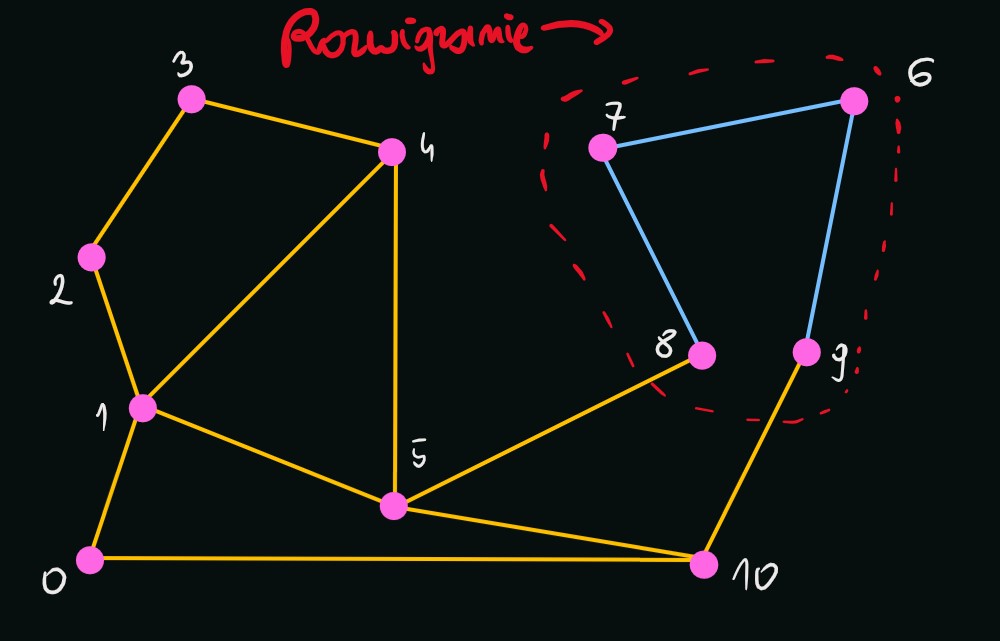 Rozwiązanie
3
6
7
4
2
8
9
1
5
0
10